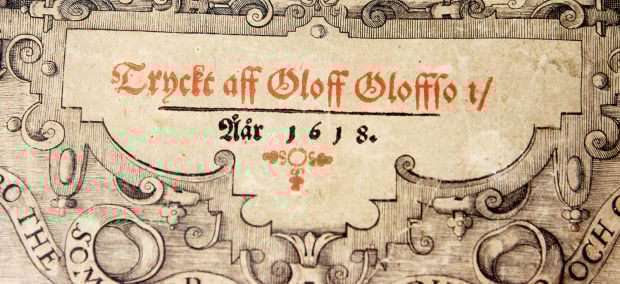 Tryckt aff Oloff Oloffſon/
Åår 1 6 1 8.
RO THE
SOM
OCH